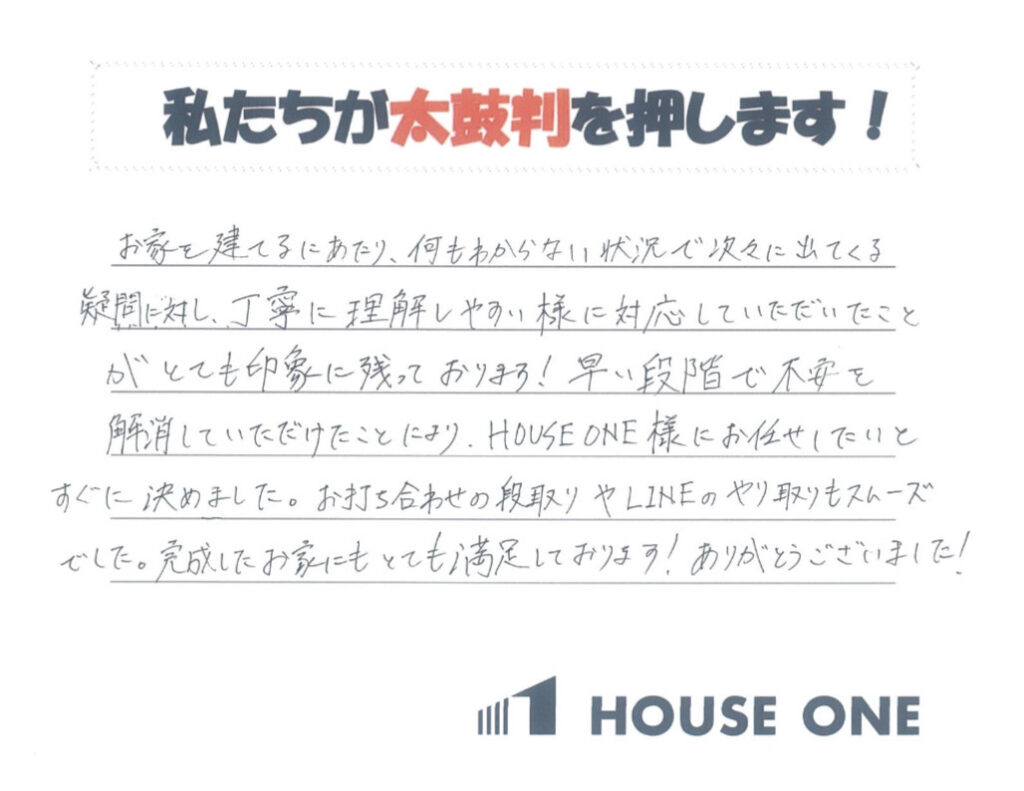 私たちが太鼓判を押します！
お家を建てるにあたり、何もわからない状況で次々に出てくる
疑問に対し、丁寧に理解しやすい様に対応していただいたこと
がとても印象に残っております！早い段階で不安を
解消していただけたことにより、HOUSE ONE様にお任せしたいと
すぐに決めました。お打ち合わせの段取りやLINEのやり取りもスムーズ
でした。完成したお家にもとても満足しております！ありがとうございました！
HOUSE ONE